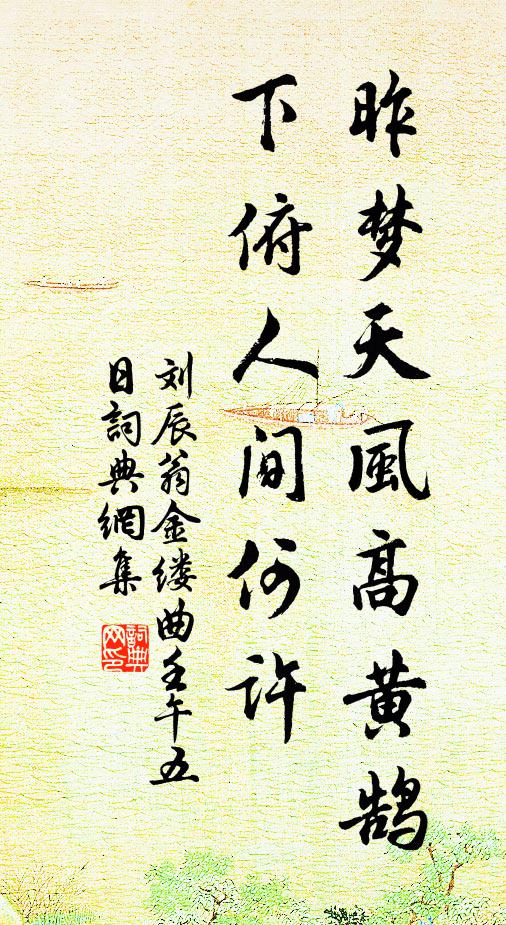 昨梦天風高黄鹄
下俯人间何许
刘辰翁金缕曲壬午五
日詞典網集
詞典
网印